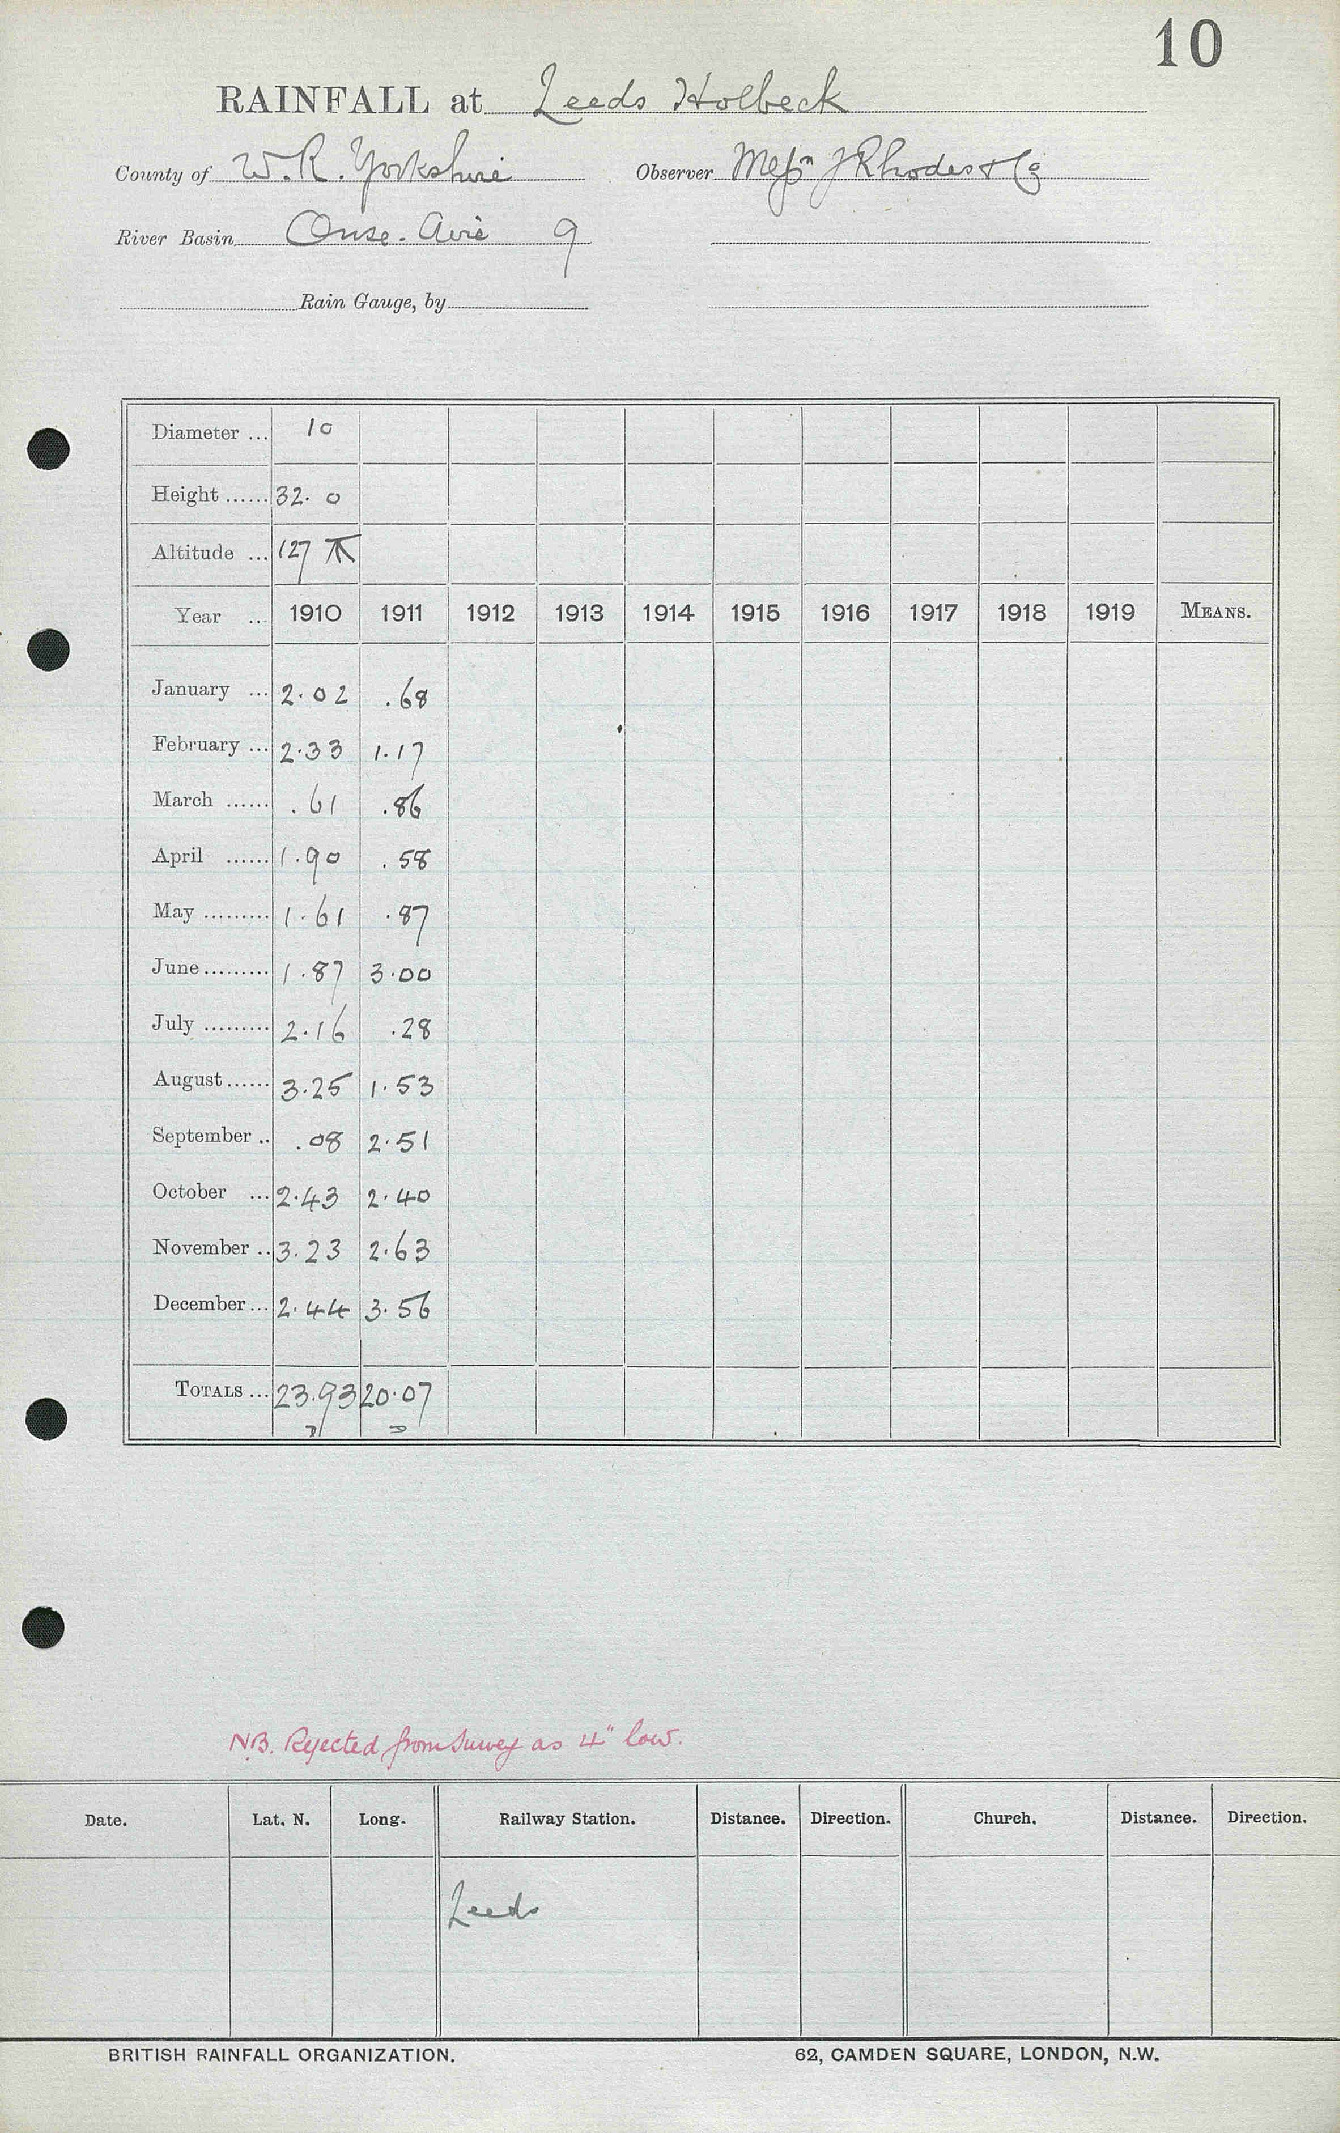 10
RAINFALL at Leeds Holbeck
County of W.R. Yorkshire Observer Messrs J Rhodes & Co
River Basin Ouse. Aire 9
Rain Gauge, by
Diameter ... 10
Height ...... 32. 0
Altitude ... 127
Year ... 1910 1911 1912 1913 1914 1915 1916 1917 1918 1919 MEANS.
January ... 2.02 .68
February ... 2.33 1.17
March ...... .61 .86
April ...... 1.90 .58
May ......... 1.61 .87
June ......... 1.87 3.00
July ......... 2.16 .28
August ...... 3.25 1.53
September .. .08 2.51
October ... 2.43 2.40
November .. 3.23 2.63
December ... 2.44 3.56
TOTALS ... 23.93 20.07
NB. Rejected from Survey as 4" low.
Date. Lat. N. Long. Railway Station. Distance. Direction. Church. Distance. Direction.
Leeds
BRITISH RAINFALL ORGANIZATION. 62, CAMDEN SQUARE, LONDON, N.W.